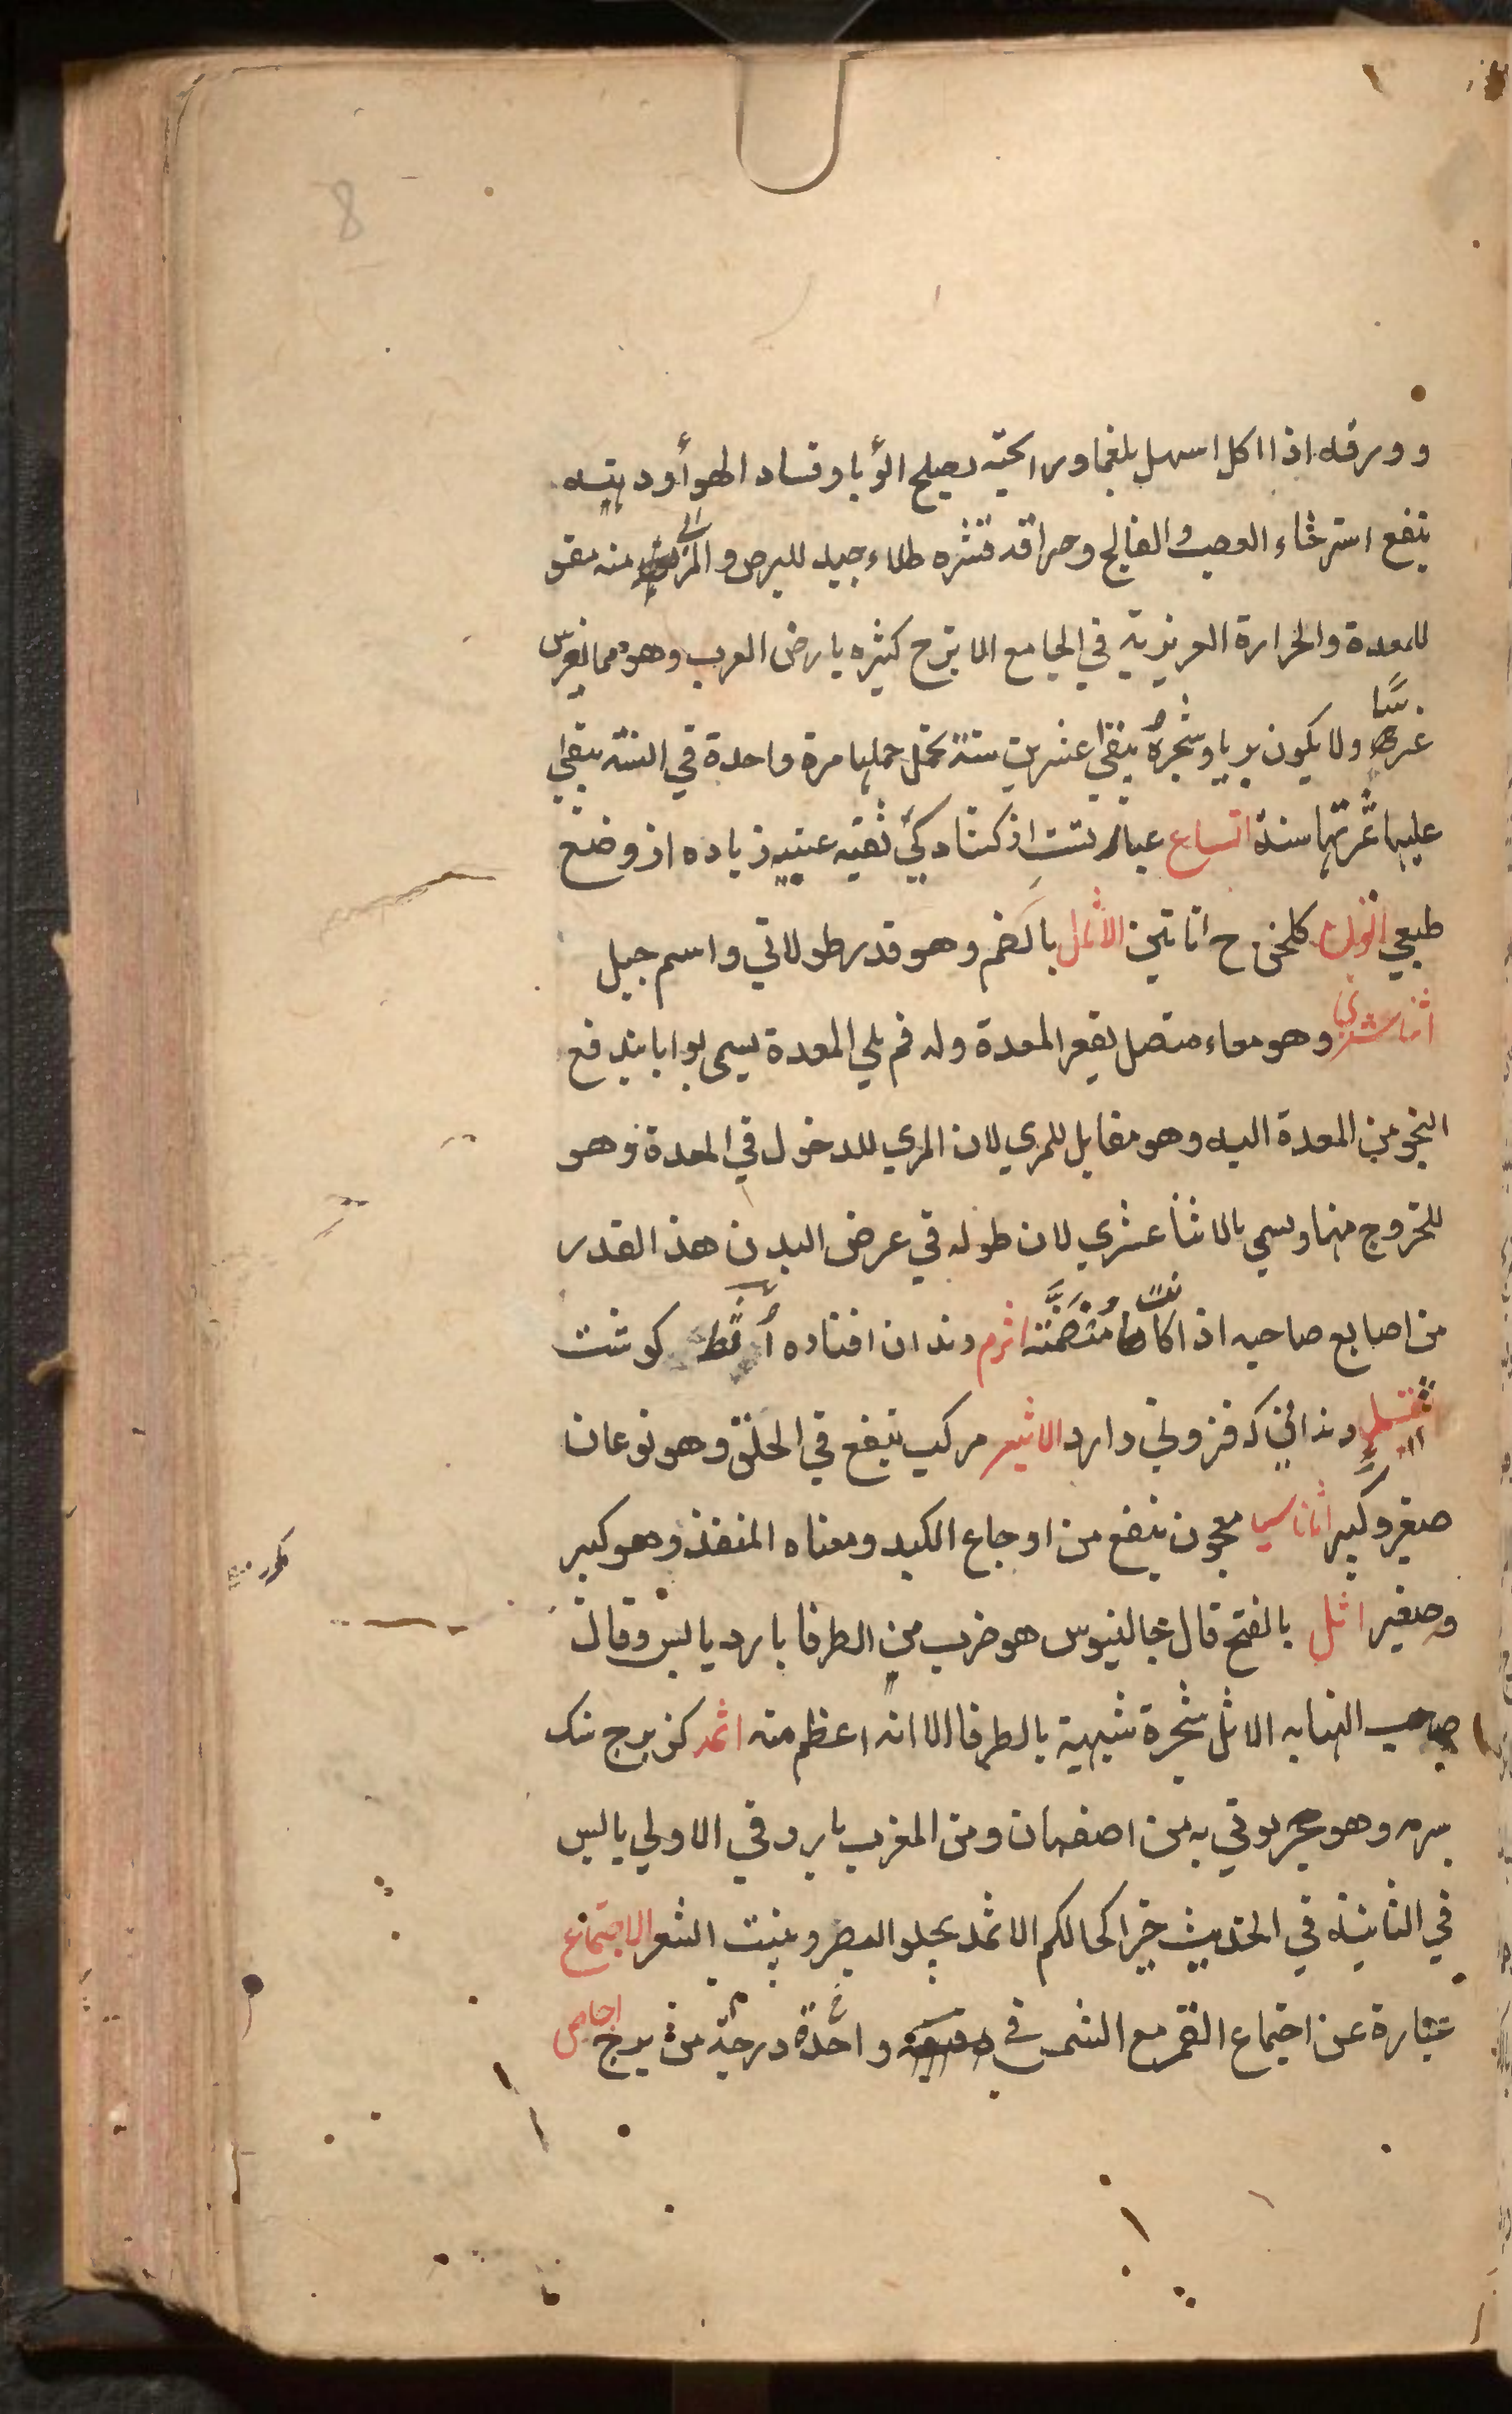 8
وورقه اذا اكل اسهل بلغما ورايحته يصلح الوبا وفساد الهوا ودهنه
ينفع استرخاء العصب والفالج وحراقة قشره طلاء جيد للبرص والمربى منه مقو
للمعدة والحرارة الغريزية في الجامع الاترج كثيره بارض العرب وهو مما يغرس
غرسا ولا يكون بريا وشجره يبقى عشرين سنة تحمل حملها مرة واحدة في السنة يبقى
عليها ثمرتها سنة اتساع عبارتست از كشادكي ثقبه عنبيه زياده از وضع
طبعي اتون كلخن ح اتاتين الاثال بالضم وهو قدر طولاني واسم جبل
اثنا عشري وهو معاء متصل بقعر المعدة وله فم يلي المعدة يسمى بوابا يندفع
النجو من المعدة اليه وهو مقابل للمري لان المري للدخول في المعدة وهو
للخروج منها ويسمى بالاثنا عشري لان طوله في عرض البدن هذا القدر
من اصابع صاحبه اذا كانت منضمة اثرم دندان افتاده اثط كوشت
دنداني كه فزوني دارد الاثير مركب ينفع في الحلق وهو نوعان
صغير وكبير اثاناسيا معجون ينفع من اوجاع الكبد ومعناه المنقذ وهو كبير
وصغير اثل بالفتح قال جالنيوس هو ضرب من الطرفا بارد يابس وقال
صاحب النهايه الاثل شجرة شبيهة بالطرفا الا انه اعظم منه اثمد كزبرج سنك
سرمه وهو حجر يوتي به من اصفهان ومن المغرب بارد في الاولي يابس
في الثانية في الحديث خير اكحالكم الاثمد يجلو البصر وينبت الشعر الاجتماع
عبارة عن اجتماع القمر مع الشمس في واحدة درجة من برج اجاص